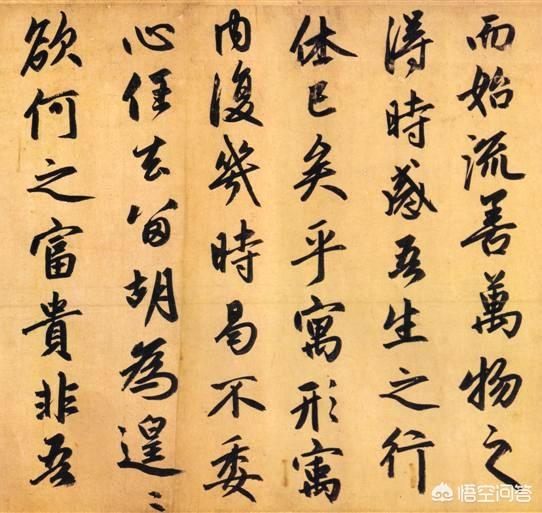 而始流善萬物之
得時感吾生之行
休已矣乎寓形寓
内復幾時曷不委
心任去留胡為遑〻
欲何之富貴非吾
悟空问答